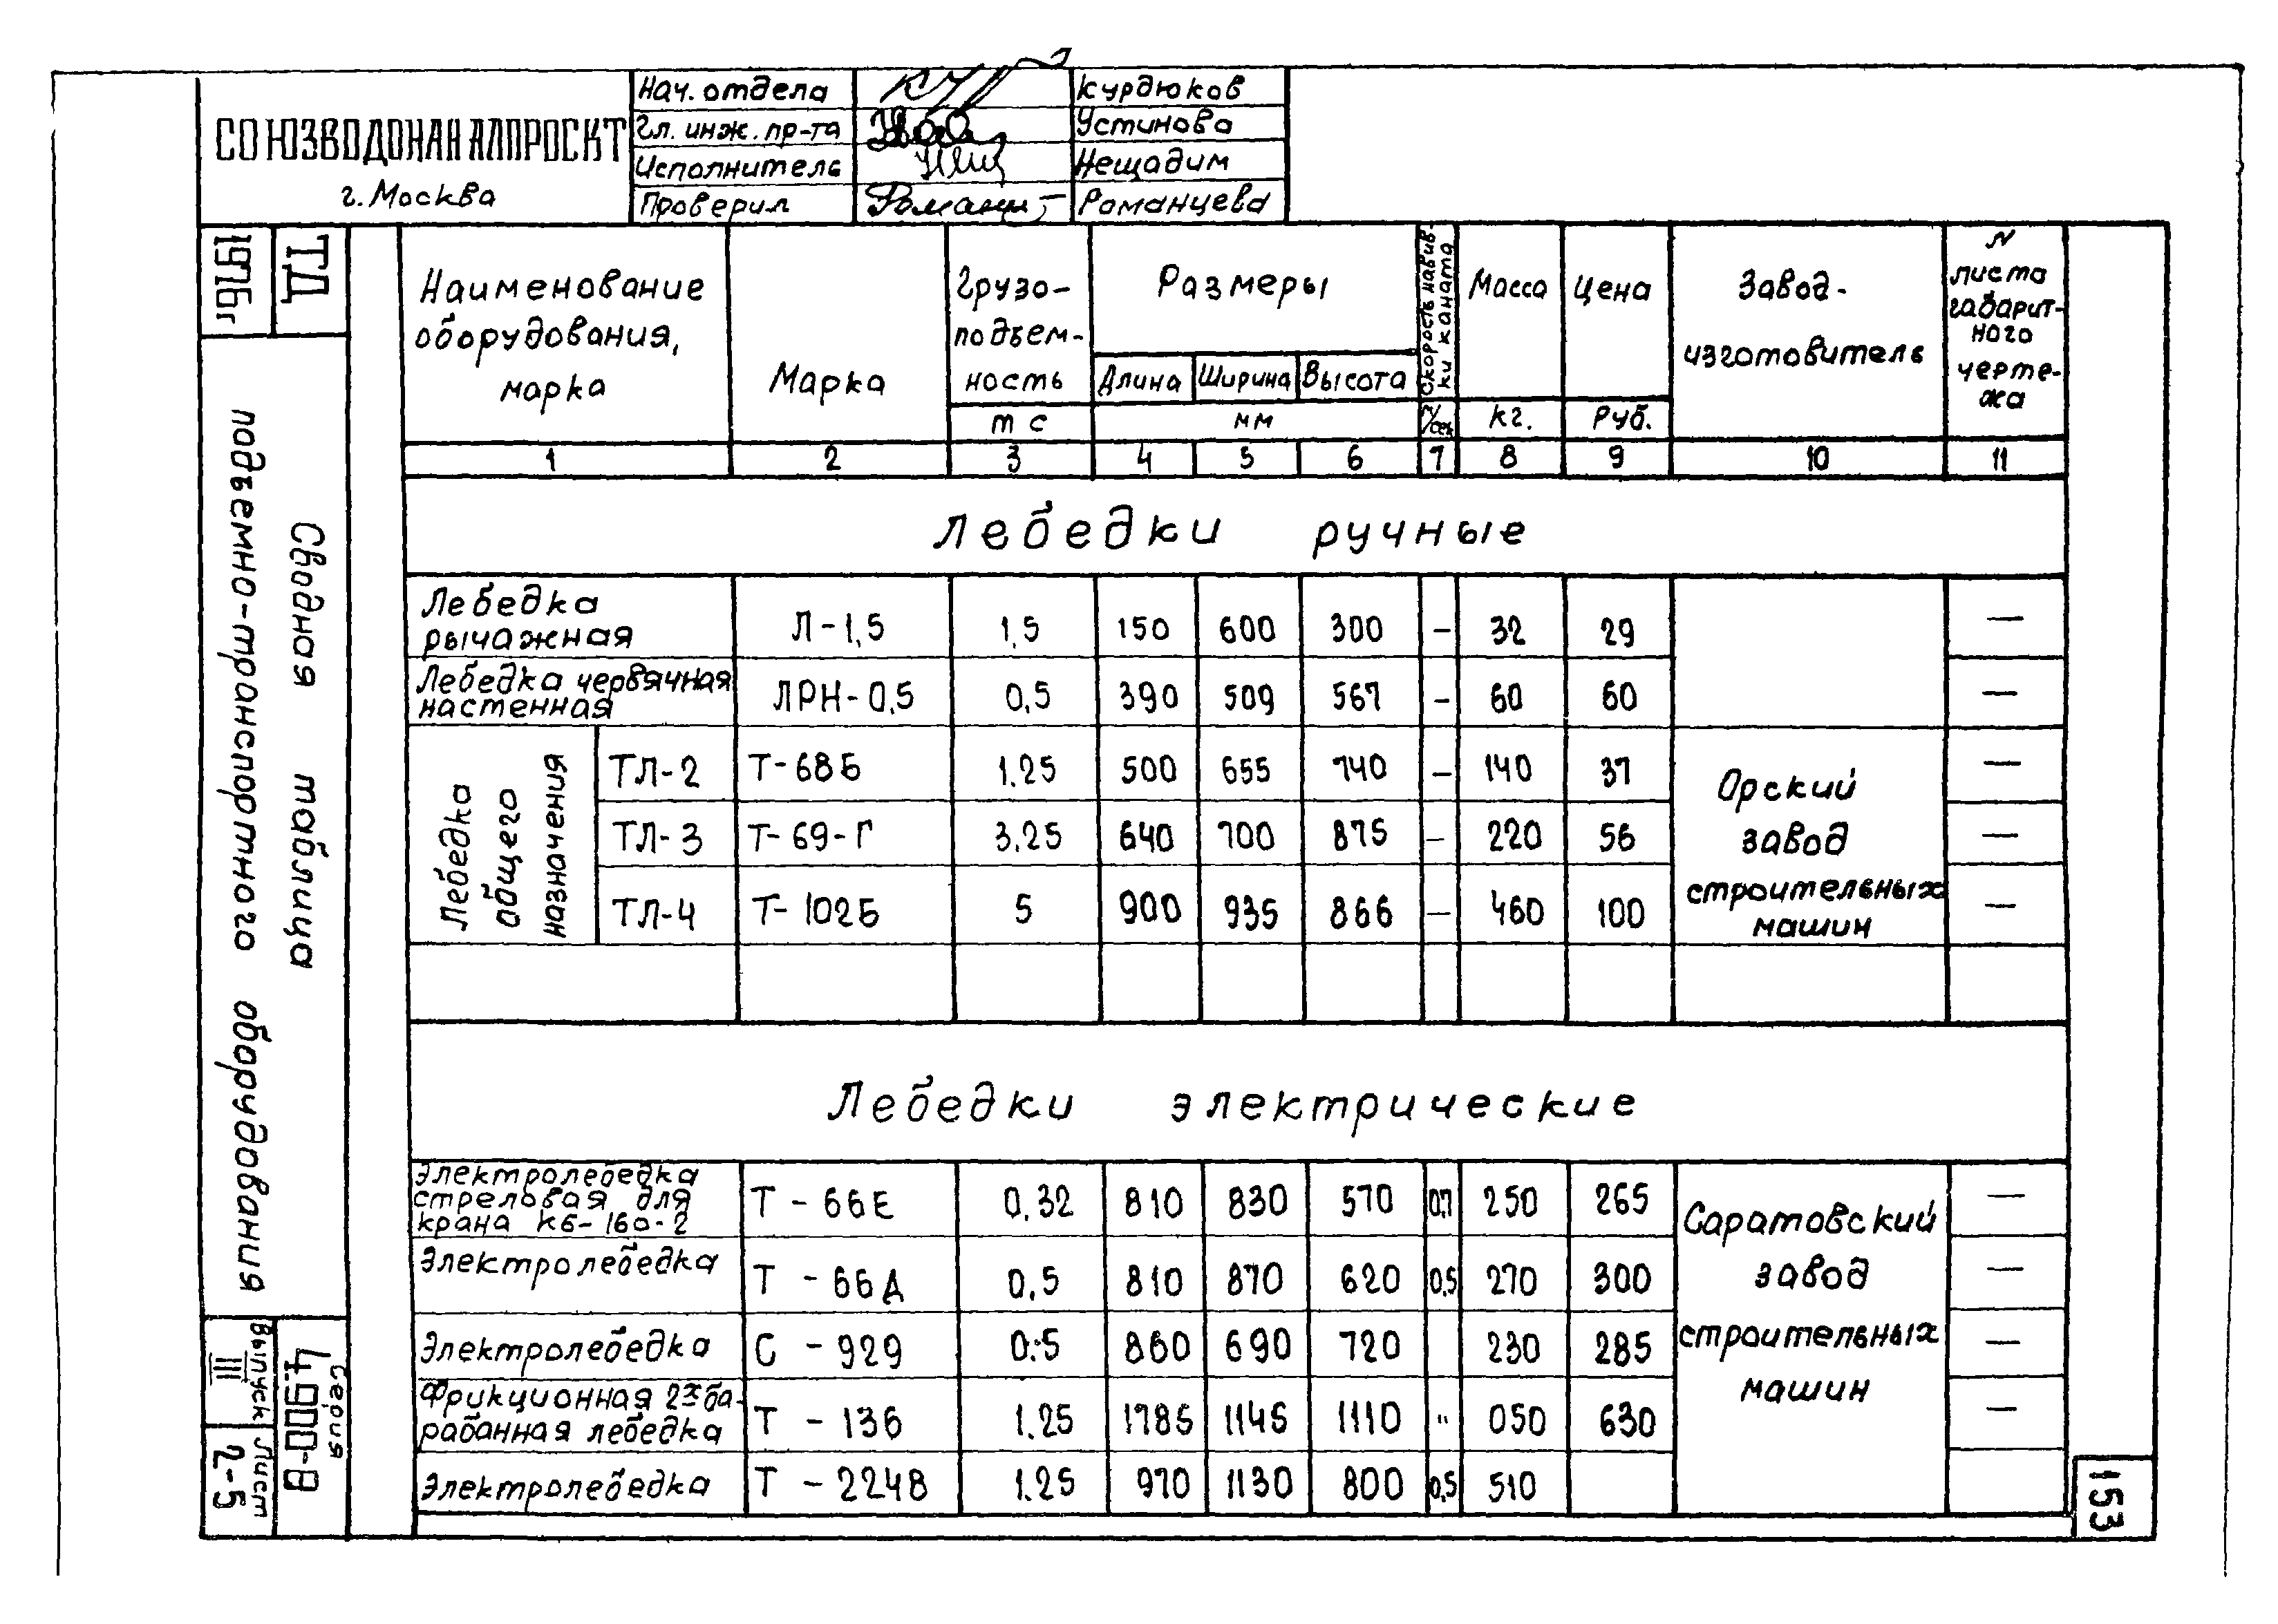 СОЮЗВОДОКАНАЛПРОЕКТ
г. Москва
Нач. отдела Курдюков
Гл. инж. пр-та Устинова
Исполнитель Нещадим
Проверил Романцева
ТД
1976г
Сводная таблица
подъемно-транспортного оборудования
Серия
4.900-8
Выпуск
III
Лист
2-5
Наименование
оборудования,
марка
Марка
Грузо-
подъем-
ность
т с
Размеры
Длина Ширина Высота
мм
Скорость навив-
ки каната
м/сек
Масса
кг.
Цена
Руб.
Завод-
изготовитель
N
листа
габарит-
ного
черте-
жа
1 2 3 4 5 6 7 8 9 10 11
Лебедки ручные
Лебедка
рычажная Л-1,5 1,5 150 600 300 – 32 29 —
Лебедка червячная
настенная ЛРН-0,5 0,5 390 509 567 – 60 60 —
Лебедка
общего
назначения
ТЛ-2 Т-68Б 1.25 500 655 740 – 140 37 —
ТЛ-3 Т-69-Г 3.25 640 700 875 – 220 56 —
ТЛ-4 Т-102Б 5 900 935 866 — 460 100 —
Орский
завод
строительных
машин
Лебедки электрические
Электролебедка
стреловая для
крана КБ-160-2 Т-66Е 0,32 810 830 570 0,7 250 265 —
Электролебедка Т-66Д 0,5 810 870 620 0,5 270 300 —
Электролебедка С-929 0.5 860 690 720 230 285 —
Фрикционная 2х ба-
рабанная лебедка Т-136 1.25 1785 1145 1110 " 050 630 —
Электролебедка Т-224В 1.25 970 1130 800 0,5 510
Саратовский
завод
строительных
машин
153